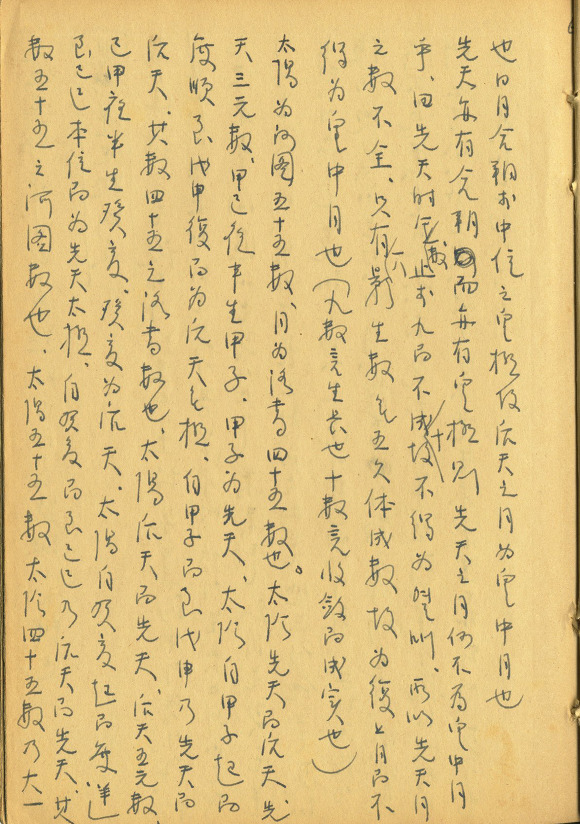 也日月合朔於中位之皇極故后天之月為皇中月也
先天亦有合朔而亦有皇極則先天之月何不為皇中月
乎、曰先天時金數止於九而不成十故不得為、所以先天月
之數不全、只有影生數无体成數故為復上月而不
得為皇中月也(九數言生長也十數言收斂而成实也)
太陽為河圖五十五數、月為洛書四十五數也。太阴先天而后天、先
天三元數、甲己夜半生甲子、甲子為先天、太阴自甲子起而
度順至戊申復而為后天无極、自甲子而至戊申乃先天而
后天、其數四十五之洛書數也、太陽后天而先天、后天五元數、
己甲夜半生癸亥、癸亥為后天、太陽自癸亥起而度逆
至己巳本位而為先天太極、自癸亥而至己巳乃后天而先天、其
數五十五之河图數也、太陽五十五數太阴四十五數乃大一